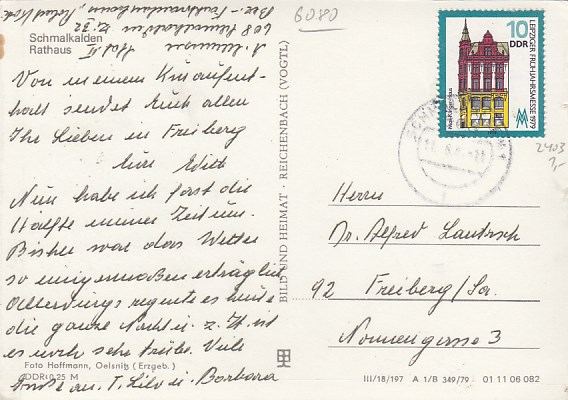 6080
Schmalkalden
Rathaus
Von meinem Kuraufent-
halt sendet Euch allen
Ihr Lieben in Freiberg
Eure Edith
Nun habe ich fast die
Hälfte meiner Zeit um.
Bisher war das Wetter
so einigermaßen erträglich
Allerdings regnete es heute
die ganze Nacht u. z. Zt. ist
es noch sehr trübe. Viele
Grüße an T. Lilo u. Barbara
Foto Hoffmann, Oelsnitz (Erzgeb.)
DDR: 0,25 M
BILD UND HEIMAT · REICHENBACH (VOGTL)
10
DDR
LEIPZIGER FRÜHJAHRSMESSE 1979
2403
1,-
Herrn
Dr. Alfred Lautzsch
92 Freiberg/Sa.
Nonnengasse 3
III/18/197 A 1/B 349/79 01 11 06 082